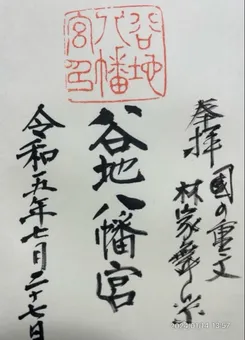 奉拝
国の重文
林家舞楽
谷地八幡宮
谷地八幡宮印
令和五年七月二十七日
2024/01/14 13:57